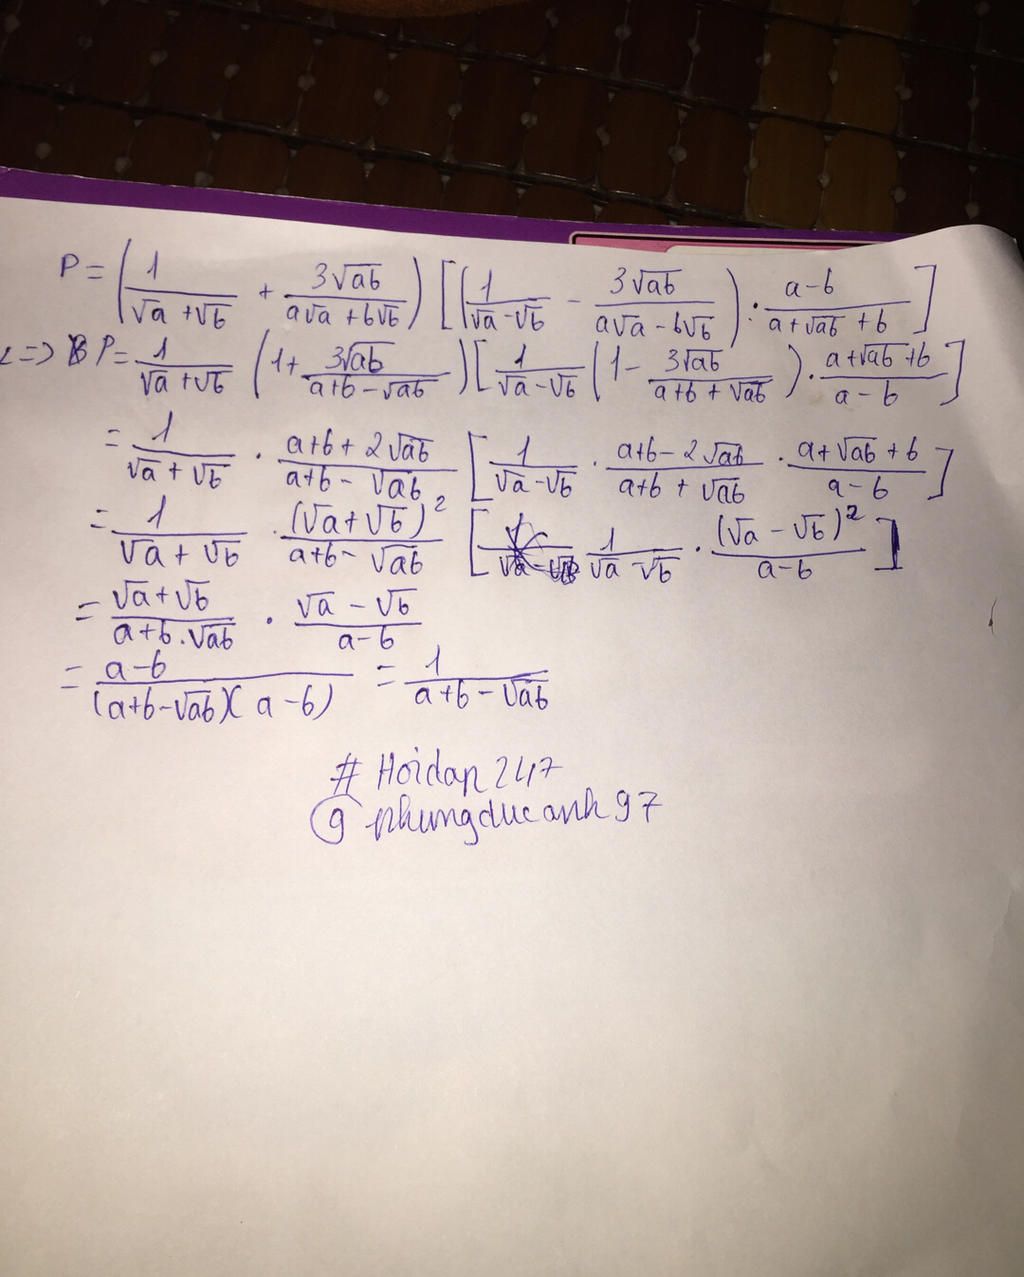 P = (1/(√a + √b) + 3√ab/(a√a + b√b)) [(1/(√a - √b) - 3√ab/(a√a - b√b)) : (a - b)/(a + √ab + b)]
<=> P = 1/(√a + √b) (1 + 3√ab/(a + b - √ab)) [1/(√a - √b) (1 - 3√ab/(a + b + √ab)) . (a + √ab + b)/(a - b)]
= 1/(√a + √b) . (a + b + 2√ab)/(a + b - √ab) [1/(√a - √b) . (a + b - 2√ab)/(a + b + √ab) . (a + √ab + b)/(a - b)]
= 1/(√a + √b) . (√a + √b)²/(a + b - √ab) [1/(√a - √b) . (√a - √b)²/(a - b)]
= (√a + √b)/(a + b . √ab) . (√a - √b)/(a - b)
= (a - b)/((a + b - √ab)(a - b)) = 1/(a + b - √ab)
# Hoidap247
@ phungducanh97